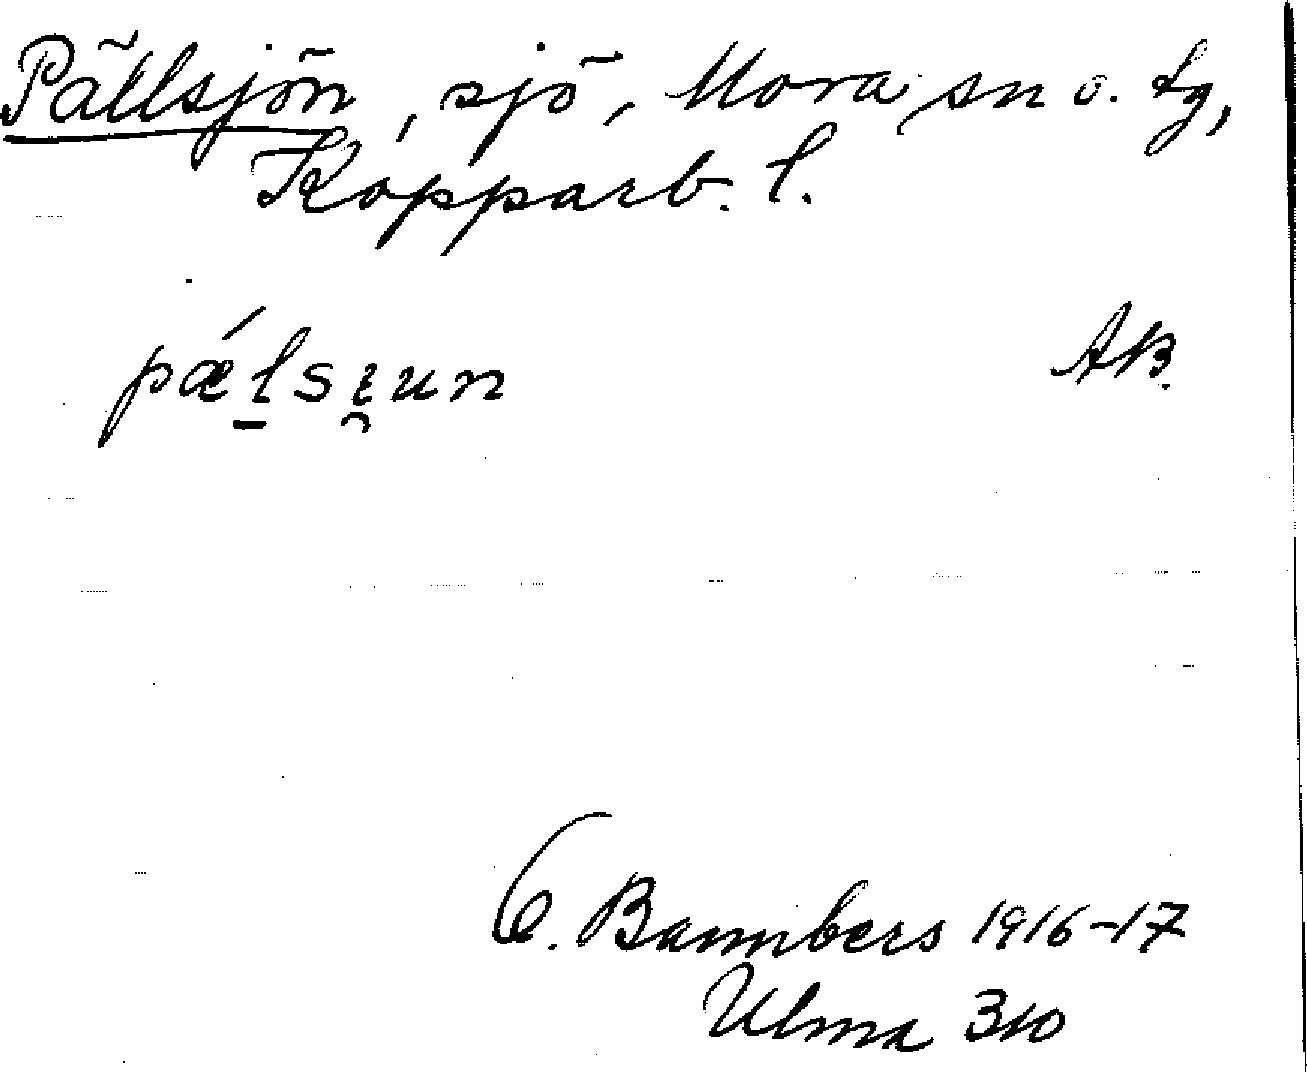 Pällsjön, sjö, Mora sn o. tg,
Kopparb. l.
pǽlsɪ̯un
AB.
O. Bannbers 1916-17
Ulma 310